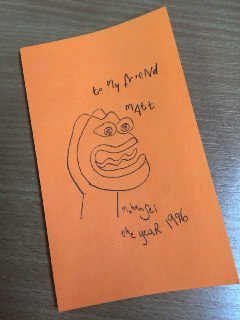 to my friEND
mAtt
the yeaR 1996